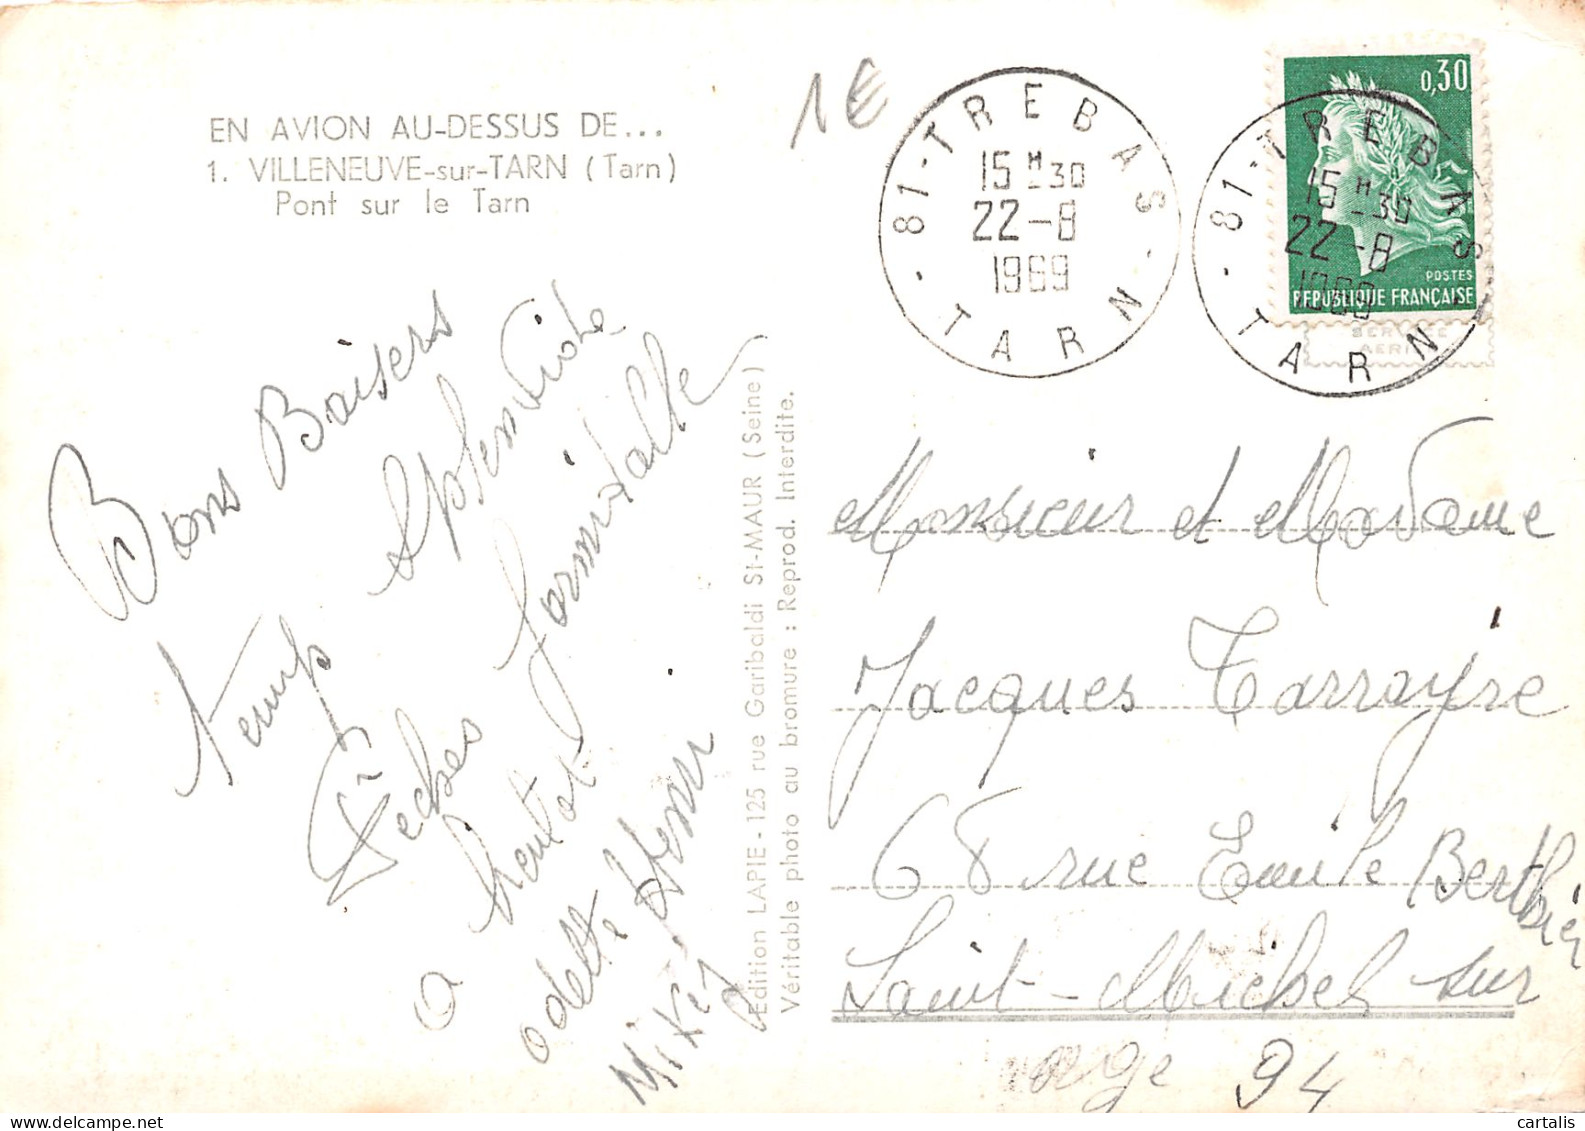 EN AVION AU-DESSUS DE...
1. VILLENEUVE-sur-TARN (Tarn)
Pont sur le Tarn
1€
81-TREBAS - TARN -
15 H 30
22-8
1969
0,30
POSTES
REPUBLIQUE FRANÇAISE
81-TREBAS - TARN
15 H 30
22-8
1969
Bons Baisers
temps splendide
Pèches formidable
a
odette Henri
Mikey
Edition LAPIE - 125 rue Garibaldi St-MAUR (Seine)
Véritable photo au bromure : Reprod. Interdite.
Monsieur et Madame
Jacques Tarroyre
68 rue Emile Berthier
Saint-Michel sur
orge 94
cartalis